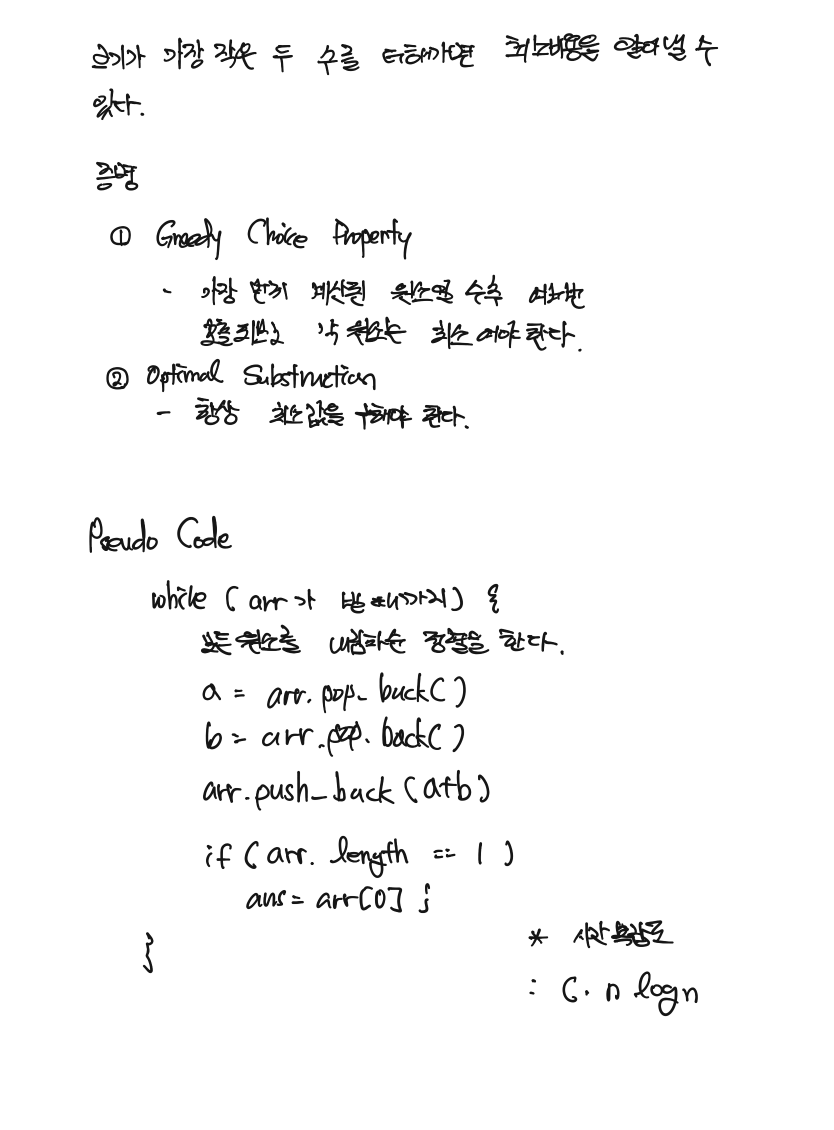 크기가 가장 작은 두 수를 더해가면 최소비용을 알아낼 수
있다.
증명
① Greedy Choice Property
- 가장 먼저 계산된 원소일 수록 여러번
호출되므로 각 원소는 최소 여야 한다.
② Optimal Substruction
- 항상 최소값을 구해야 한다.
Pseudo Code
while ( arr가 빌 때까지 ) {
모든 원소를 내림차순 정렬을 한다.
a = arr.pop_back( )
b = arr.pop.back( )
arr.push_back (a+b)
if ( arr. length == 1 )
ans = arr[0] ;
}
* 시간복잡도
: C. n log n